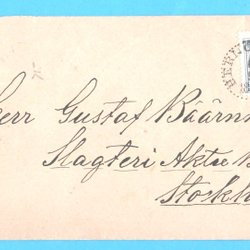 err Gustaf Bäärn
Slagteri Aktie
Stockh